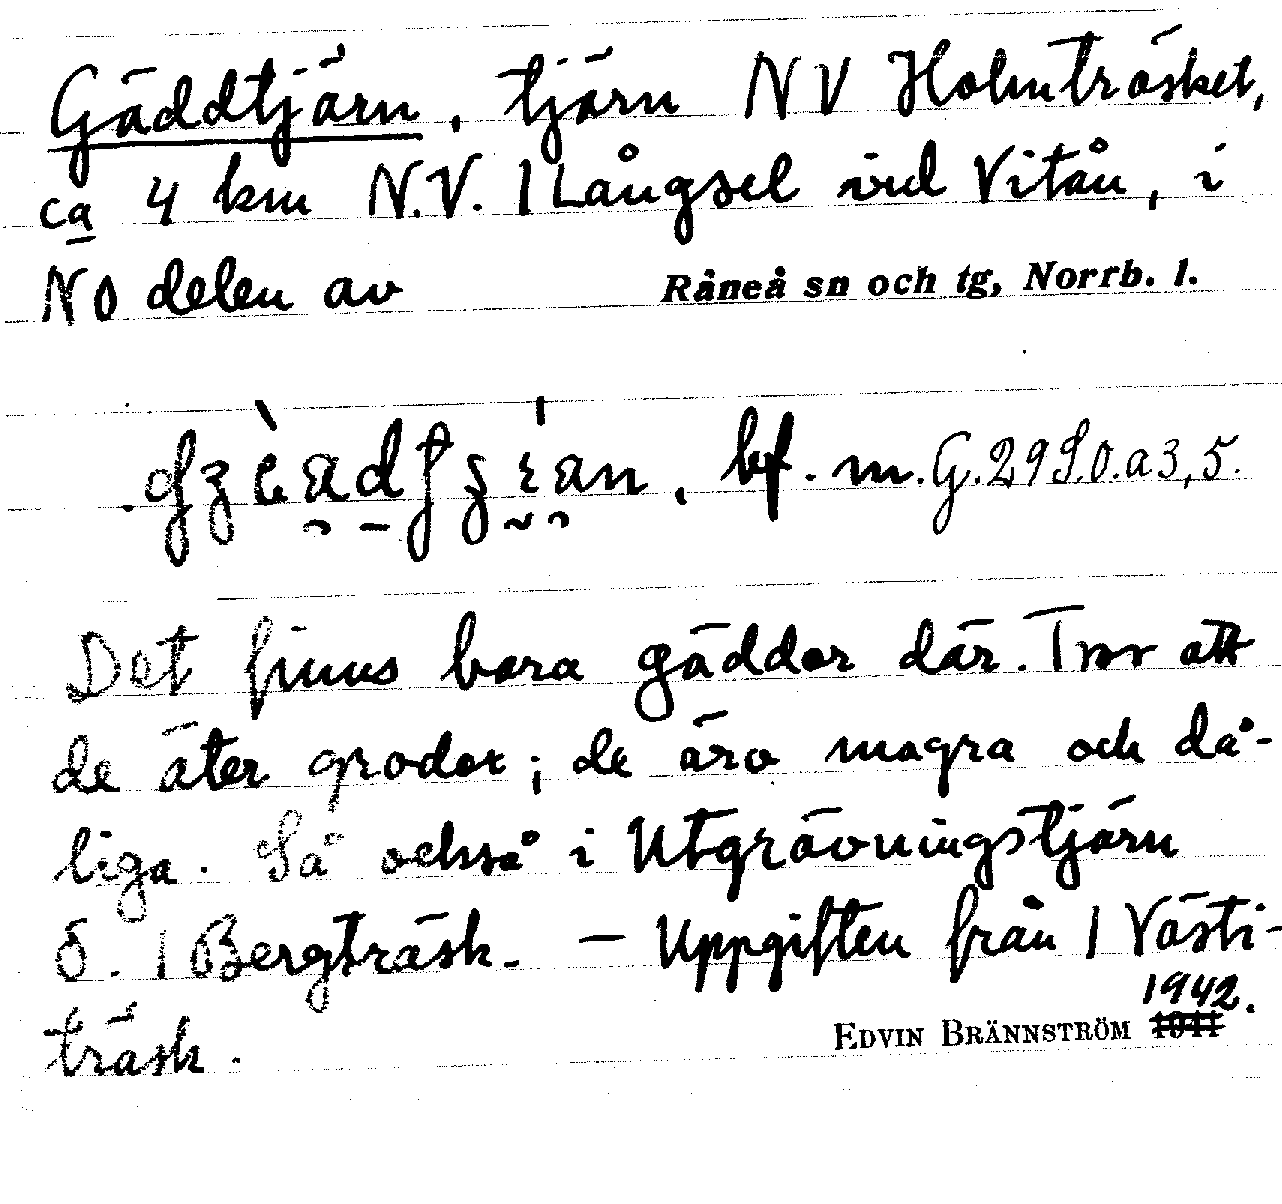 Gäddtjärn, tjärn NV Holmträsket,
ca 4 km N.V. I Långsel vid Vitån, i
NO delen av Råneå sn och tg, Norrb. l.
bf. m. G. 29 S.O. a 3, 5.
Det finns bara gäddor där. Tror att
de äter grodor; de äro magra och då-
liga. Så också i Utgrävningstjärn
Ö. I Bergträsk. — Uppgiften från I Västi-
träsk.
1942.
EDVIN BRÄNNSTRÖM 1941